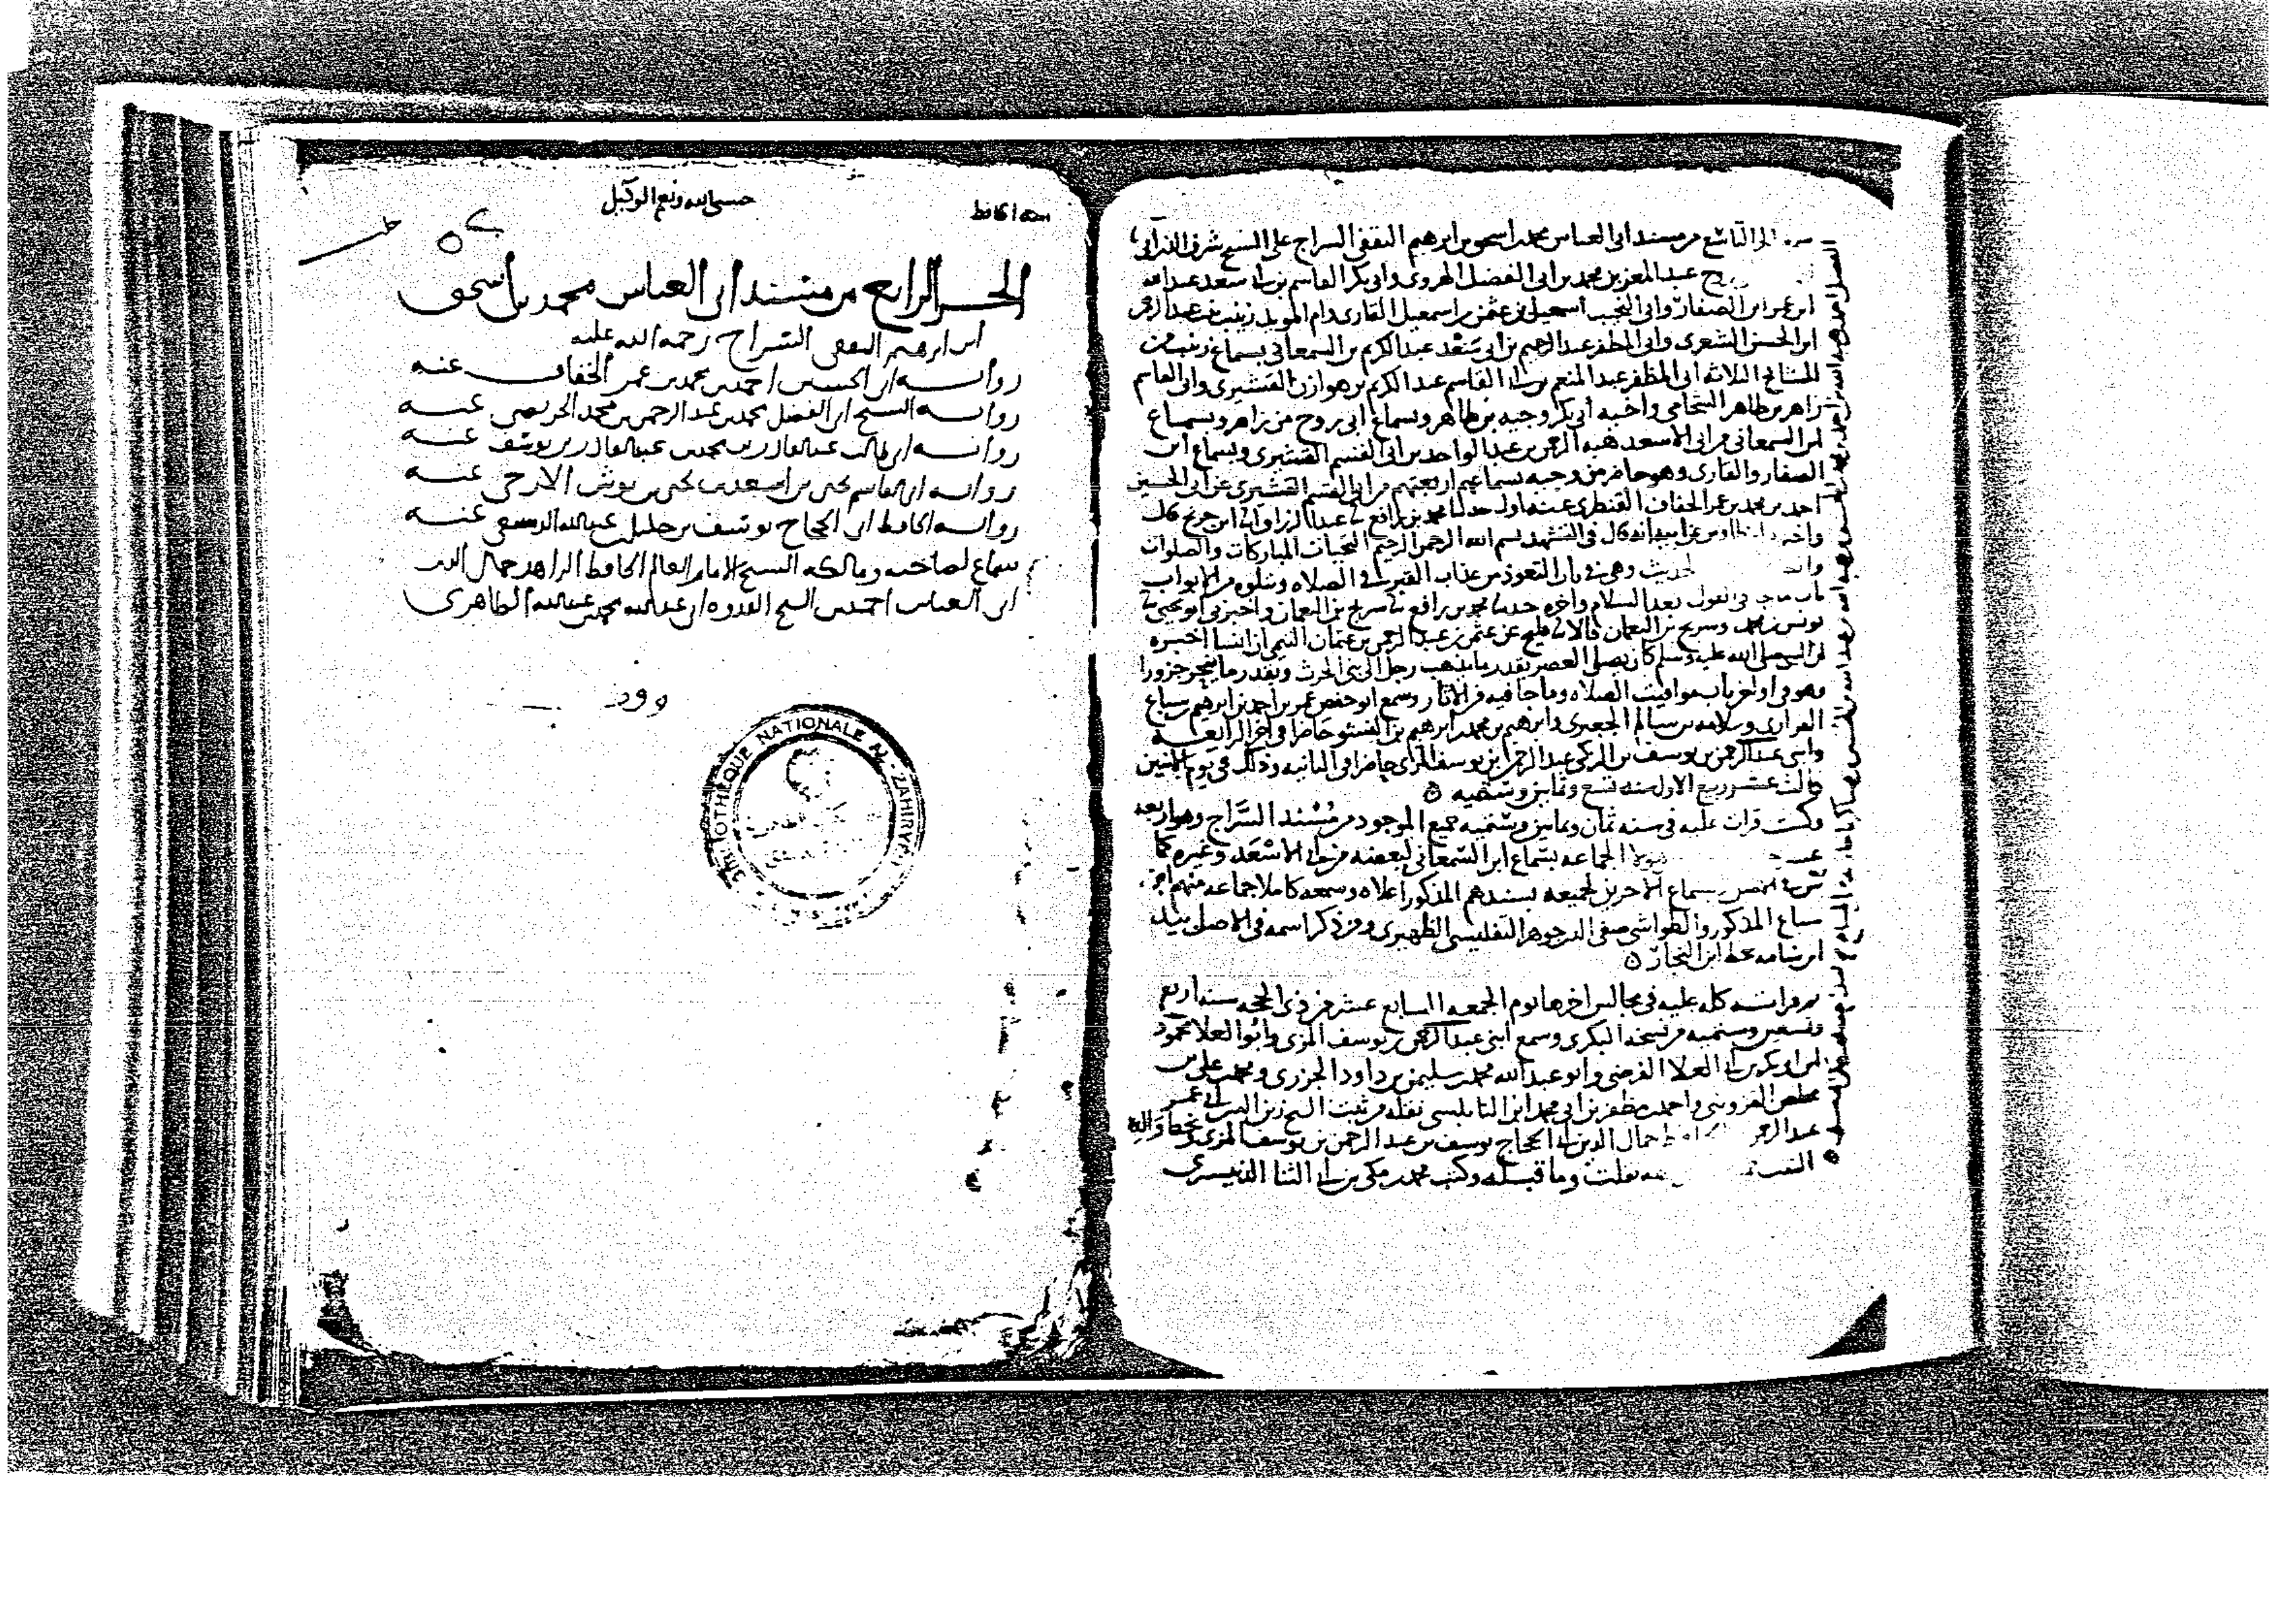 الجز التاسع من مسند ابي العباس محمد بن اسحق بن ابرهيم الثقفي السراج على الشيخ شرف الدين ابي
روح عبد المعز بن محمد بن ابي الفضل الهروي وابي بكر القاسم بن ابي سعد عبد الله
ابن عمر ابن الصفار وابي النجيب اسمعيل بن عثمن بن اسمعيل القاري وام المويد زينب بنت عبد الرحمن
ابن الحسن الشعري وابي المظفر عبد الرحيم بن ابي سعد عبد الكريم بن السمعاني بسماع زينب من
المشايخ الثلاثه ابي المظفر عبد المنعم بن ابي القاسم عبد الكريم بن هوازن القشيري وابي القاسم
زاهر بن طاهر الشحامي واخيه ابي بكر وجيه بن طاهر وبسماع ابي روح من زاهر وبسماع
ابن السمعاني من ابي الاسعد هبه الرحمن بن عبد الواحد بن ابي القسم القشيري وبسماع ابن
الصفار والقاري وهو حاضر من وجيه بسماعهم اربعتهم من ابي القسم القشيري عن ابي الحسين
احمد بن محمد بن عمر الخفاف القنطري عنه اوله حدثنا محمد بن رافع ثنا عبد الرزاق انا ابن جريج قال
واخبرني ابن طاوس عن ابيه انه قال في التشهد بسم الله الرحمن الرحيم التحيات المباركات والصلوات
الحديث وهو في باب التعوذ من عذاب القبر في الصلاه وتتلوه من الابواب
باب ما يقول بعد السلام واخره حدثنا محمد بن رافع ثنا سريج بن النعمان واخبرني ابو يحيى ثنا
يونس بن محمد وسريج بن النعمان قالا ثنا فليح عن عثمن بن عبد الرحمن بن عثمان التيمي ان انسا اخبره
ان النبي صلى الله عليه وسلم كان يصلي العصر بقدر ما يذهب رجل الى بني الحرث وبقدر ما ينحر جزورا
وهو في اواخر باب مواقيت الصلاه وما جا فيه من الاثار وسمع ابو حفص عمر بن احمد بن ابرهيم بن سباع
الفزاري وسلامه بن سالم الجعبري وابرهيم بن محمد بن ابرهيم بن حاضرا في اخر الرابعه
وابني عبد الرحمن بن يوسف بن الزكي عبد الرحمن بن يوسف المزي حاضرا في الثانيه وذلك في يوم الاثنين
ثالث عشر ربيع الاول سنه تسع وثمانين وستميه
وكنت قرات عليه في سنه ثمان وثمانين وستميه جميع الموجود من مسند السراج وهو اربعه
عشر الجماعه بسماع ابن السمعاني لبعضه من ابي الاسعد وغيره كما
بسماع الاخرين لجميعه بسندهم المذكور اعلاه وسمعه كاملا جماعه منهم
سباع المذكور والطواشي صفي الدين جوهر التفليسي الظهيري ومن ذكر اسمه في الاصل بيد
ابن شامه بخط ابن النجار
قراته كله عليه في مجالس اخرها يوم الجمعه السابع عشر من ذي الحجه سنه اربع
وتسعين وستميه من نسخه البكري وسمع ابني عبد الرحمن بن يوسف المزي وابو العلا محمود
ابن ابي بكر بن ابي العلا الفرضي وابو عبد الله محمد بن سليمن بن داود الجزري ومحمد بن علي بن
القزويني واحمد بن مظفر بن ابي محمد ابن النابلسي نقله من ثبت الشيخ زين الدين ابي عمر
جمال الدين ابي الحجاج يوسف بن عبد الرحمن بن يوسف المزي
نقلت وما قبله وكتب محمد بن مكي بن ابي الثنا
حسبي الله ونعم الوكيل
الجز الرابع من مسند ابي العباس محمد بن اسحق
ابن ابرهيم الثقفي السراج رحمه الله عليه
روايه ابي الحسين احمد بن محمد بن عمر الخفاف عنه
روايه الشيخ ابي الفضل محمد بن عبد الرحمن بن محمد الحريضي عنه
روايه ابي طالب عبد القادر بن محمد بن عبد القادر بن يوسف عنه
روايه ابي القاسم يحيى بن اسعد بن يحيى بن بوش الازجي عنه
روايه الحافظ ابي الحجاج يوسف بن خليل بن عبد الله الدمشقي عنه
سماع لصاحبه ومالكه الشيخ الامام العالم الحافظ الزاهد جمال الدين
ابي العباس احمد بن الشيخ القدوه ابي عبد الله محمد بن عبد الله الظاهري
وقف
BIBLIOTHEQUE NATIONALE AL-ZAHIRYAH